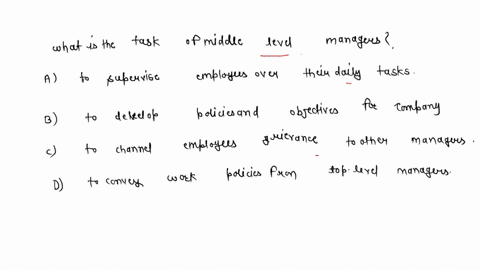 what is the task of middle level managers?
A) to supervise employees over their daily tasks.
B) to develop policies and objectives for company
C) to channel employees grievance to other managers.
D) to convey work policies from top-level managers.